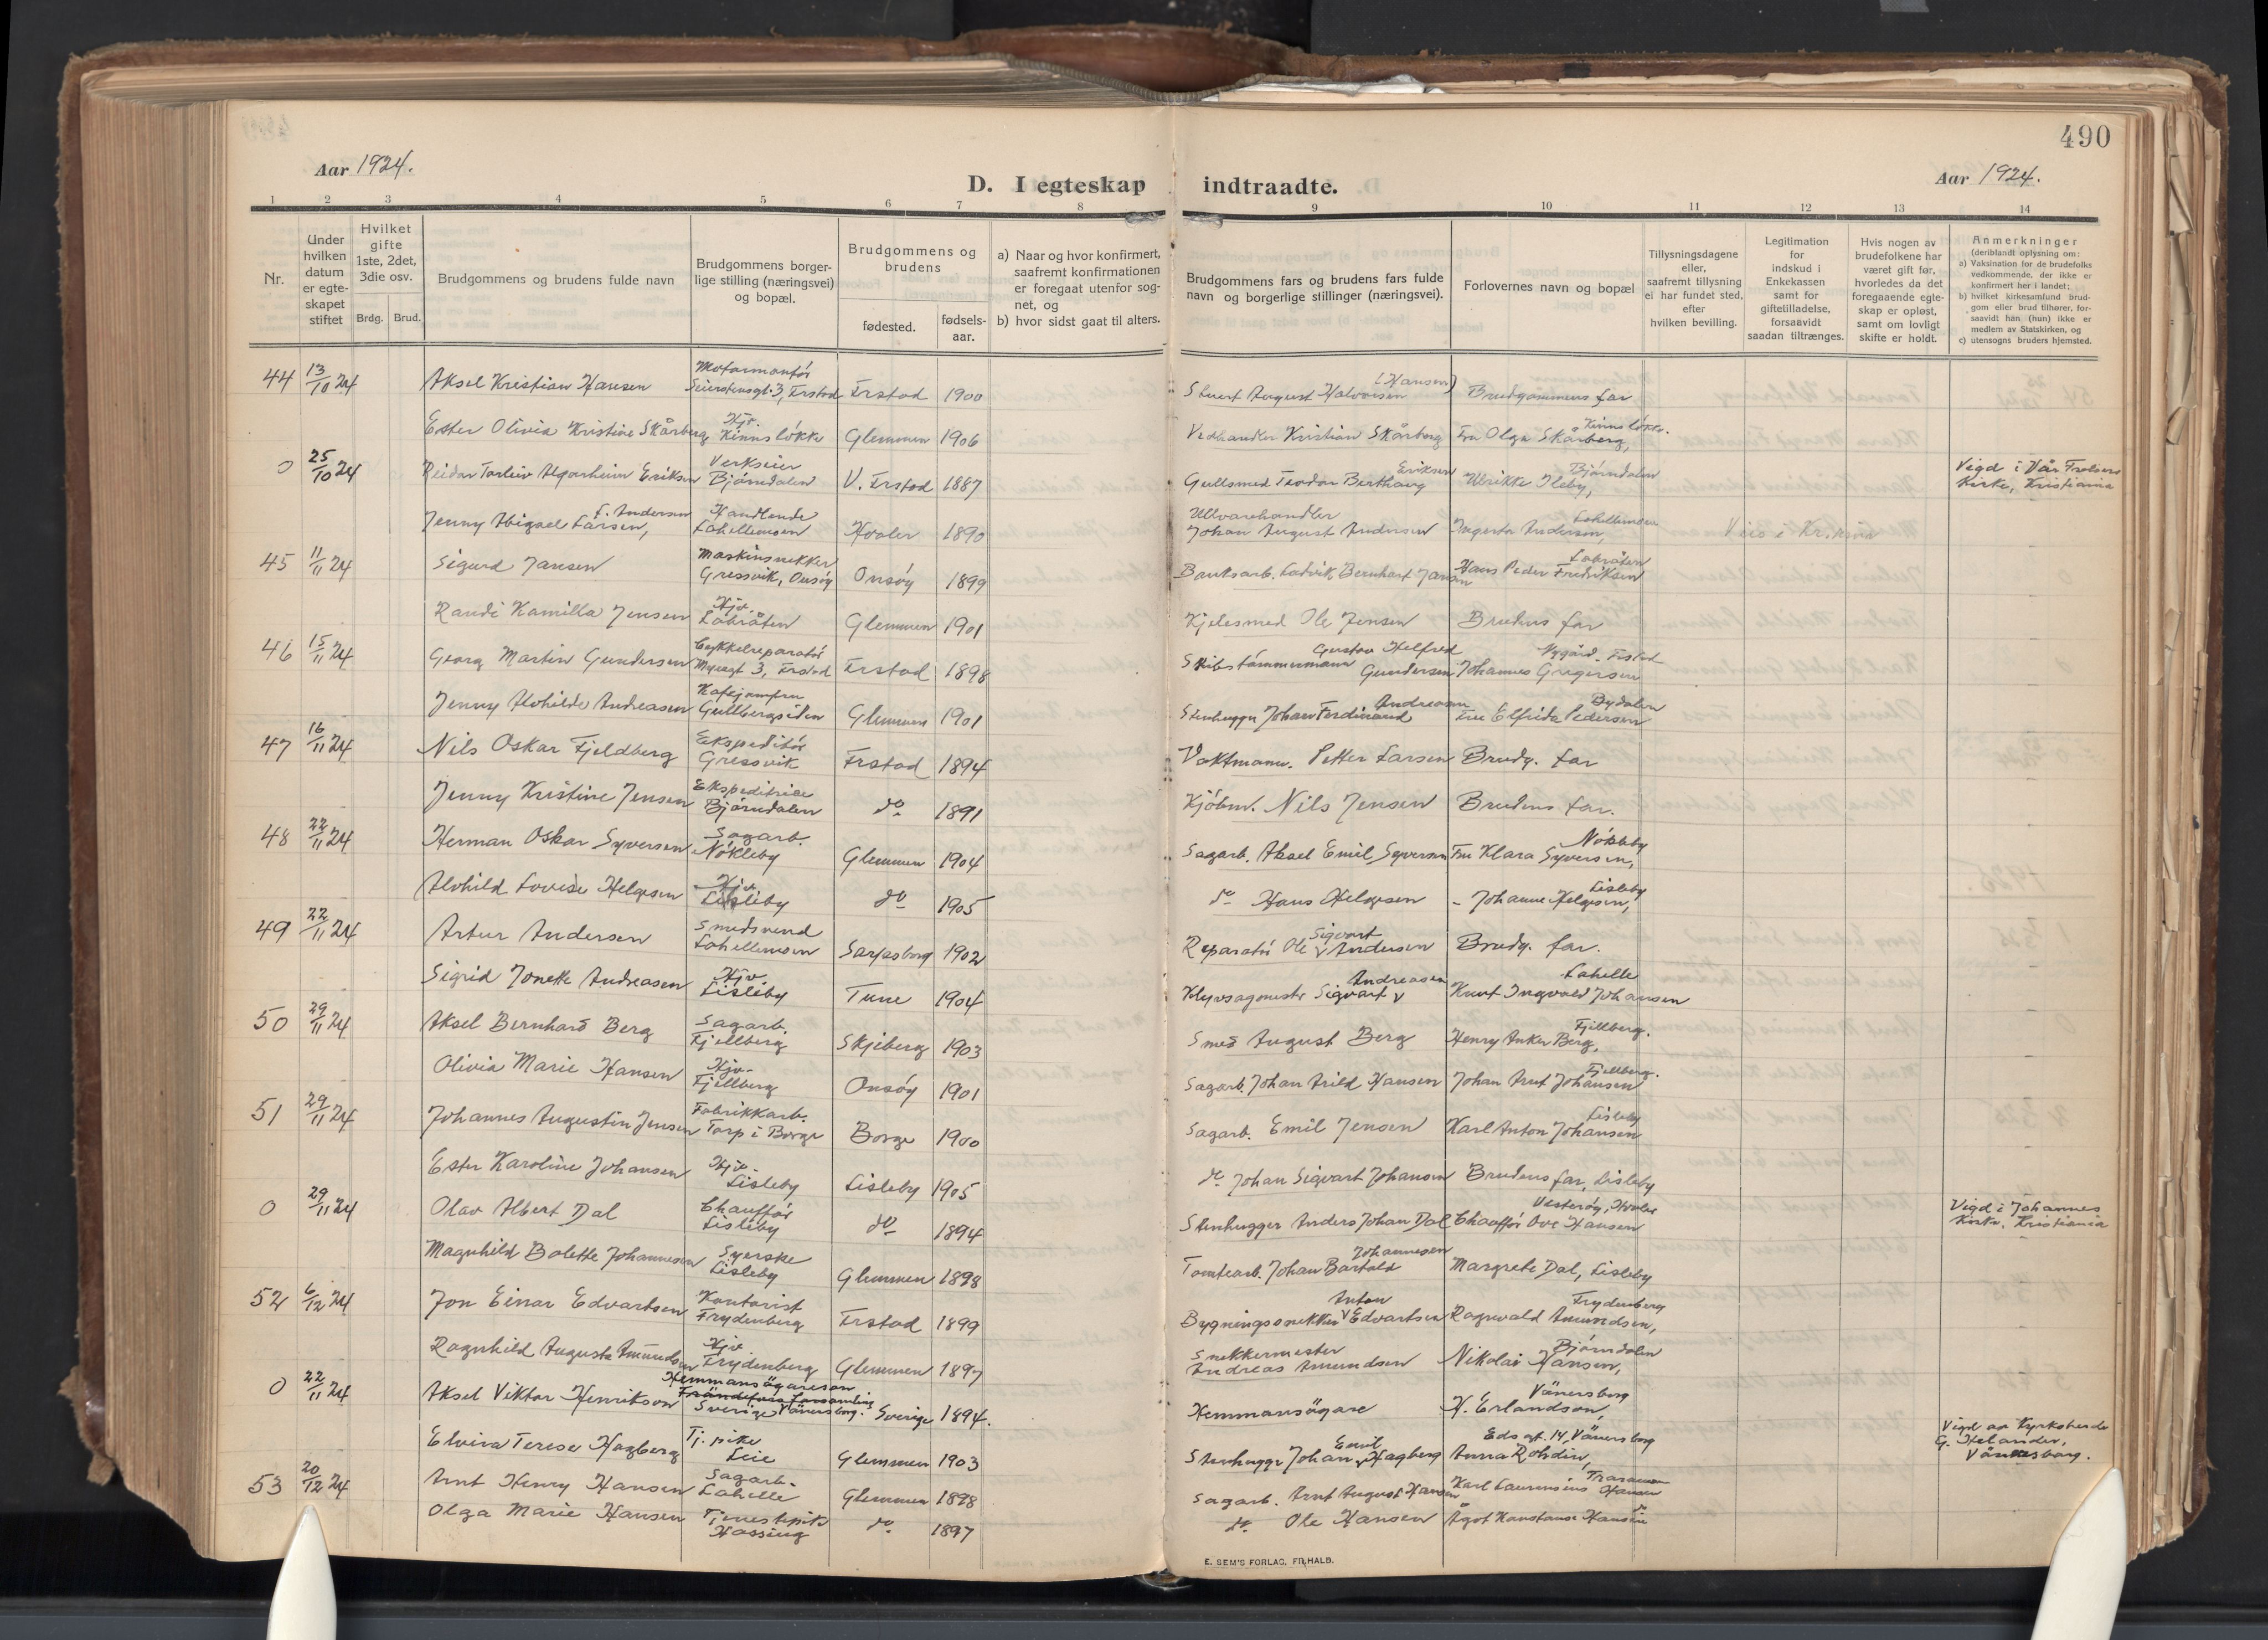 490
Aar 1924.
D. I egteskap indtraadte.
Aar 1924.
1 2 3 4 5 6 7 8 9 10 11 12 13 14
Nr.
Under hvilken datum er egteskapet stiftet
Hvilket gifte 1ste, 2det, 3die osv.
Brdg. Brud.
Brudgommens og brudens fulde navn
Brudgommens borgerlige stilling (næringsvei) og bopæl.
Brudgommens og brudens
fødested. fødselsaar.
a) Naar og hvor konfirmert, saafremt konfirmationen er foregaat utenfor sognet, og
b) hvor sidst gaat til alters.
Brudgommens fars og brudens fars fulde navn og borgerlige stillinger (næringsvei).
Forlovernes navn og bopæl
Tillysningsdagene eller, saafremt tillysning ei har fundet sted, efter hvilken bevilling.
Legitimation for indskud i Enkekassen samt for giftetilladelse, forsaavidt saadan tiltrænges.
Hvis nogen av brudefolkene har været gift før, hvorledes da det foregaaende egteskap er opløst, samt om lovligt skifte er holdt.
Anmerkninger (deriblandt oplysning om:
a) Vaksination for de brudefolks vedkommende, der ikke er konfirmert her i landet;
b) hvilket kirkesamfund brudgom eller brud tilhører, forsaavidt han (hun) ikke er medlem av Statskirken, og
c) utensogns bruders hjemsted.
44 13/10 24 Aksel Kristian Hansen Motormontør Seierstensgt. 3, Frstad Frstad 1900 August Halvorsen (Hansen) Brudgommens far
Ester Olivia Kristine Skårberg Hjv. Kinnsløkke Glemmen 1906 Vedhandler Kristian Skårberg Fru Olga Skårberg, Kinnsløkk.
0 25/10 24 Reidar Torleiv Algarheim Eriksen Verkseier Bjørndalen V. Frstad 1887 Gullsmed Teodor Berthaug Eriksen Ulrikke Ileby, Bjørndalen Vigd i Vår Frelsers Kirke, Kristiania
Jenny Abigael Larsen, f. Andersen Handlende Lahellemoen Hvaler 1890 Ullvarehandler Johan August Andersen Ingerta Andersen, Lahellemoen Vies i Kr.ania
45 11/11 24 Sigurd Jansen Maskinsnekker Gressvik, Onsøy Onsøy 1899 Bruksarb. Ludvik Bernhart Jansen Hans Peder Fredriksen Labråten
Randi Kamilla Jensen Hjv. Labråten Glemmen 1901 Kjelesmed Ole Jensen Brudens far
46 15/11 24 Georg Martin Gundersen Cykkelreparatør Myragt 3, Frstad Frstad 1898 Skibstømmermann Gustav Helfred Gundersen Johannes Gregersen Nygård. Frstad
Jenny Alvhilde Andreasen Kafejomfru Gullbergsiden Glemmen 1901 Stenhugger Johan Ferdinand Andreasen Fru Elfrida Pedersen Bydalen
47 16/11 24 Nils Oskar Fjeldberg Ekspeditør Gressvik Frstad 1894 Vaktmann. Petter Larsen Brudg. far
Jenny Kristine Jensen Ekspeditrise Bjørndalen do 1891 Kjøbm. Nils Jensen Brudens far.
48 22/11 24 Herman Oskar Syversen Sagarb. Nøkleby Glemmen 1904 Sagarb. Aksel Emil Syversen Fru Klara Syversen, Nøkleby
Alvhild Lovise Helgesen Hjv. Lisleby do 1905 do Hans Helgesen - Johanne Helgesen, Lisleby
49 22/11 24 Artur Andersen Smedsvend Lahellemoen Sarpsborg 1902 Reparatør Ole Sigvart Andersen Brudg. far.
Sigrid Jonette Andreasen Hjv. Lisleby Tune 1904 Klyvsagmestr Sigvart Andreasen Knut Ingvald Johansen Lahelle
50 29/11 24 Aksel Bernhard Berg Sagarb. Fjellberg Skjeberg 1903 Smed August Berg Henry Anker Berg, Fjellberg.
Olivia Marie Hansen Hjv. Fjellberg Onsøy 1901 Sagarb. Johan Arild Hansen Johan Arnt Johansen Fjellberg.
51 29/11 24 Johannes Augustin Jensen Fabrikkarb. Torp i Borge Borge 1900 Sagarb. Emil Jensen Karl Anton Johansen Lisleby
Ester Karoline Johansen Hjv. Lisleby Lisleby 1905 do Johan Sigvart Johansen Brudens far, Lisleby
0 29/11 24 Olav Albert Dal Chauffør Lisleby do 1894 Stenhugger Anders Johan Dal Chauffør Ove Hansen Vesterøy, Hvaler Vigd i Johannes Kirke, Kristiania
Magnhild Bolette Johannesen Syerske Lisleby Glemmen 1898 Tomtearb. Johan Bartold Johannesen Margrete Dal, Lisleby
52 6/12 24 Jon Einar Edvartsen Kontorist Frydenberg Frstad 1899 Bygningssnekker Anton Edvartsen Ragnvald Amundsen, Frydenberg
Ragnhild Augusta Amundsen Hjv. Frydenberg Glemmen 1897 Snekkermester Andreas Amundsen Nikolai Hansen, Bjørndalen
0 22/11 24 Aksel Viktor Henrikson Hemmansägareson Sverige Vänersborg. Sverige 1894. Hemmansägare H. Erlandson, Vänersborg
Elvira Terese Hagberg Tj. pike Leie Glemmen 1903 Stenhugger Johan Emil Hagberg Anna Rohdin, Eds gt. 14, Vänersborg Vigd av Kyrkoherde G. Helander, Vänersborg.
53 20/12 24 Arnt Henry Hansen Sagarb. Lahelle Glemmen 1898 Sagarb. Arnt August Hansen Karl Laurensius Hansen
Olga Marie Hansen Tjenestepike Hassing do 1897 do Ole Hansen Ågot Konstanse Hansen do
E. SEM'S FORLAG, FR.HALD.